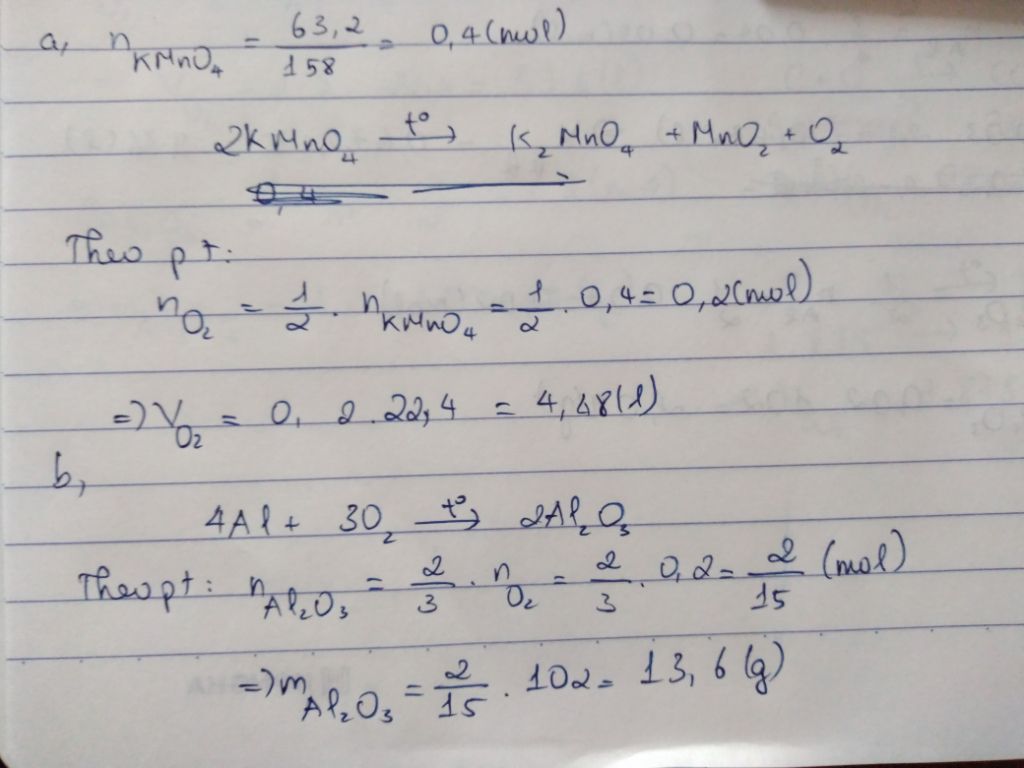 a, nKMnO₄ = 63,2/158 = 0,4 (mol)
2KMnO₄ t°→ K₂MnO₄ + MnO₂ + O₂
0,4
Theo pt:
nO₂ = 1/2 . nKMnO₄ = 1/2 . 0,4 = 0,2 (mol)
=> VO₂ = 0,2 . 22,4 = 4,48 (l)
b,
4Al + 3O₂ t°→ 2Al₂O₃
Theo pt: nAl₂O₃ = 2/3 . nO₂ = 2/3 . 0,2 = 2/15 (mol)
=> mAl₂O₃ = 2/15 . 102 = 13,6 (g)